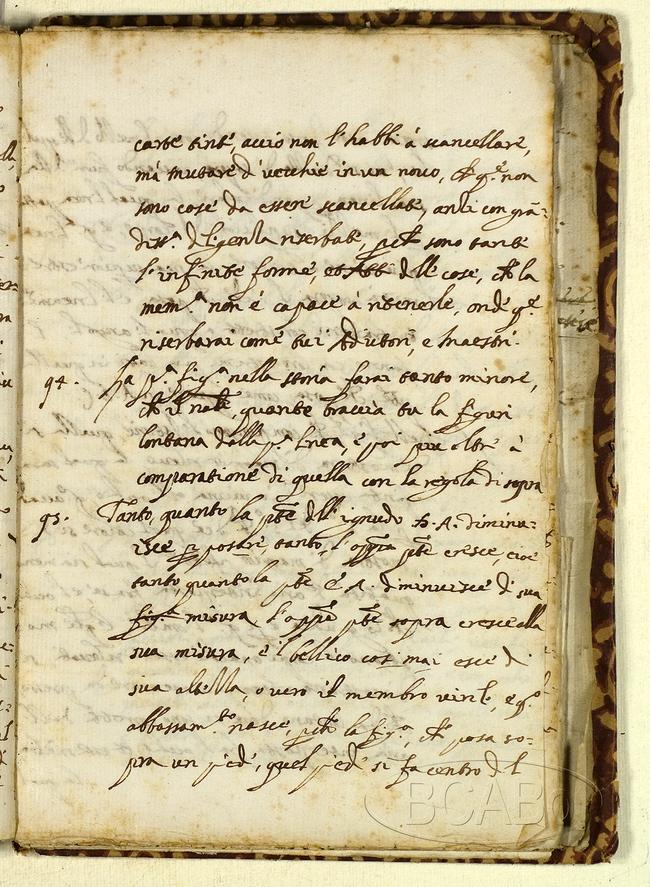 carte tinte, accio non l'habbi á scancellare,
má mutare d'vecchie in un novo, ch q.e non
sono cose da essere scancellate, anzi con grã-
diss.a diligenza riserbate, pch sono tante
l'infinite forme, et atti dlle cose, ch la
mem.a non é capace à ritenerle, onde q.e
riserbarai come tuoi adiutori, e Maestri.
94. La p.a fig.a nella storia farai tanto minore,
ch il nale, quante braccia tu la figuri
lontana dalla p.a linea, e poi piu oltre à
comparatione di quella con la regola di sopra
95. Tanto, quanto la pte dll'ignudo D. A. diminu-
isce p posare, tanto, l'oppta pte cresce, cioe
tanto, quanto la pte D A. diminuisce di sua
misura l'oppta pte sopra cresce alla
sua misura, e l'bellico cosi mai esce di
sua altezza, overo il membro virile, e q.o
abbassam.to nasce, pch la fig.a, ch posa so-
pra un piede, quel piede si fa centro del
BCABo